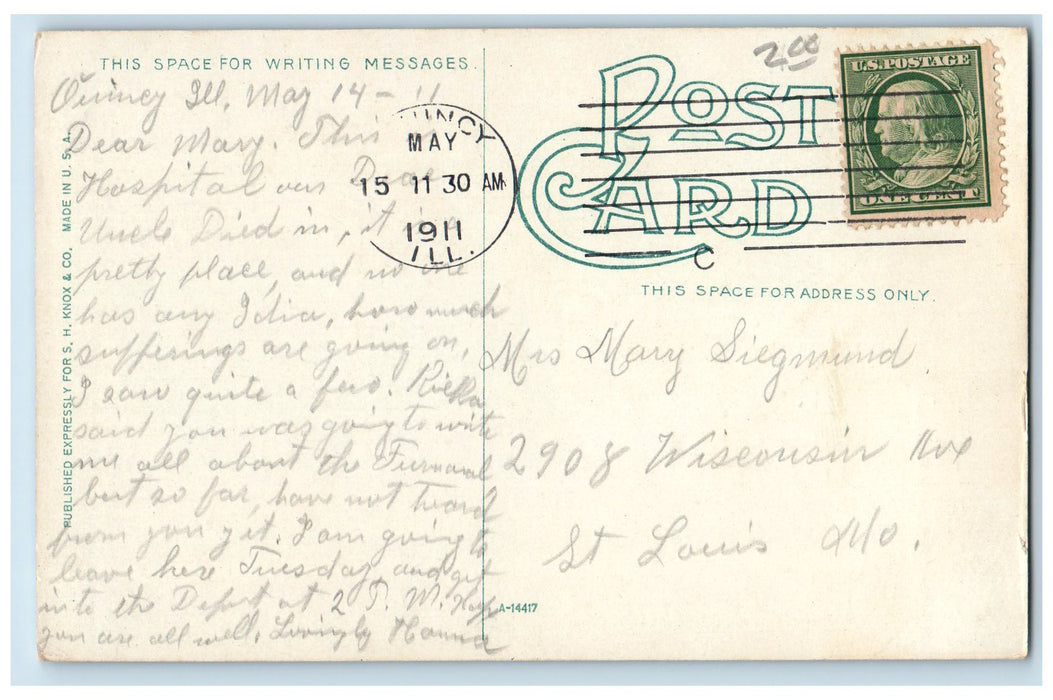 THIS SPACE FOR WRITING MESSAGES.
Quincy Ill, May 14 - 11
Dear Mary. This is
Hospital our Dear
Uncle Died in, it is a
pretty place, and no one
has any Idia, how much
sufferings are going on,
I saw quite a few. Riekka
said you was going to write
me all about the Furnaral
but so far, have not heard
from you yet. I am going to
leave here Tuesday and get
into the Depot at 2 P. M. Hope
you are all well. Lovingly Hanna
PUBLISHED EXPRESSLY FOR S. H. KNOX & CO. MADE IN U. S. A.
QUINCY
MAY
15 11 30 AM
1911
ILL.
C
200
U.S. POSTAGE
ONE CENT
POST
CARD
THIS SPACE FOR ADDRESS ONLY.
Mrs Mary Siegmund
2908 Wisconsin Ave
St Louis Mo.
A-14417